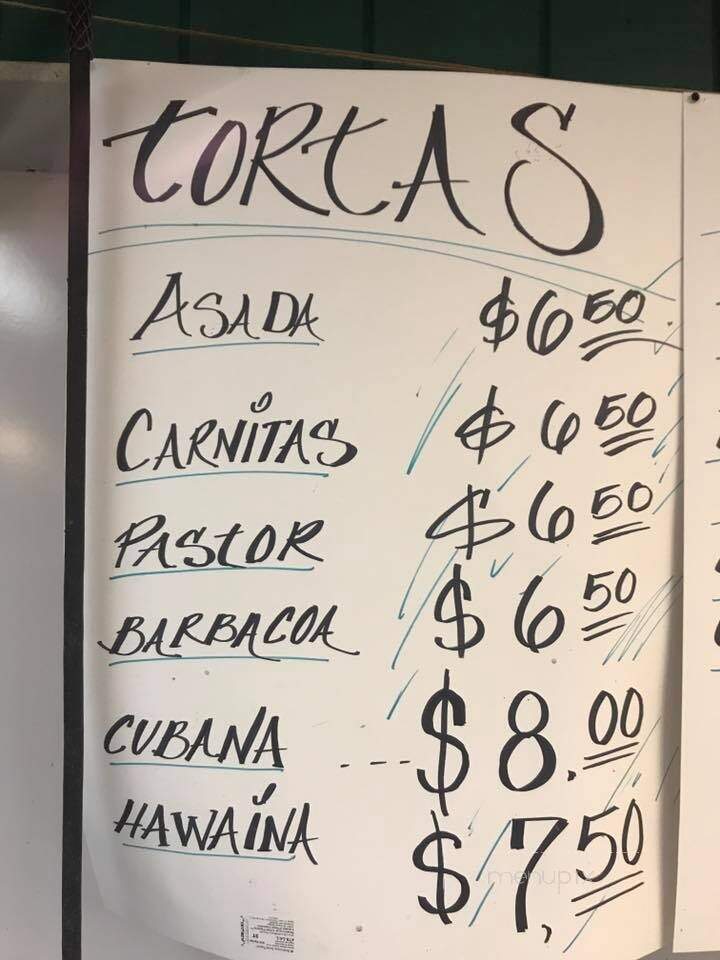 TORTAS
ASADA $6 50
CARNITAS $6 50
PASTOR $6 50
BARBACOA $6 50
CUBANA ---$8.00
HAWAINA $7,50
menupix